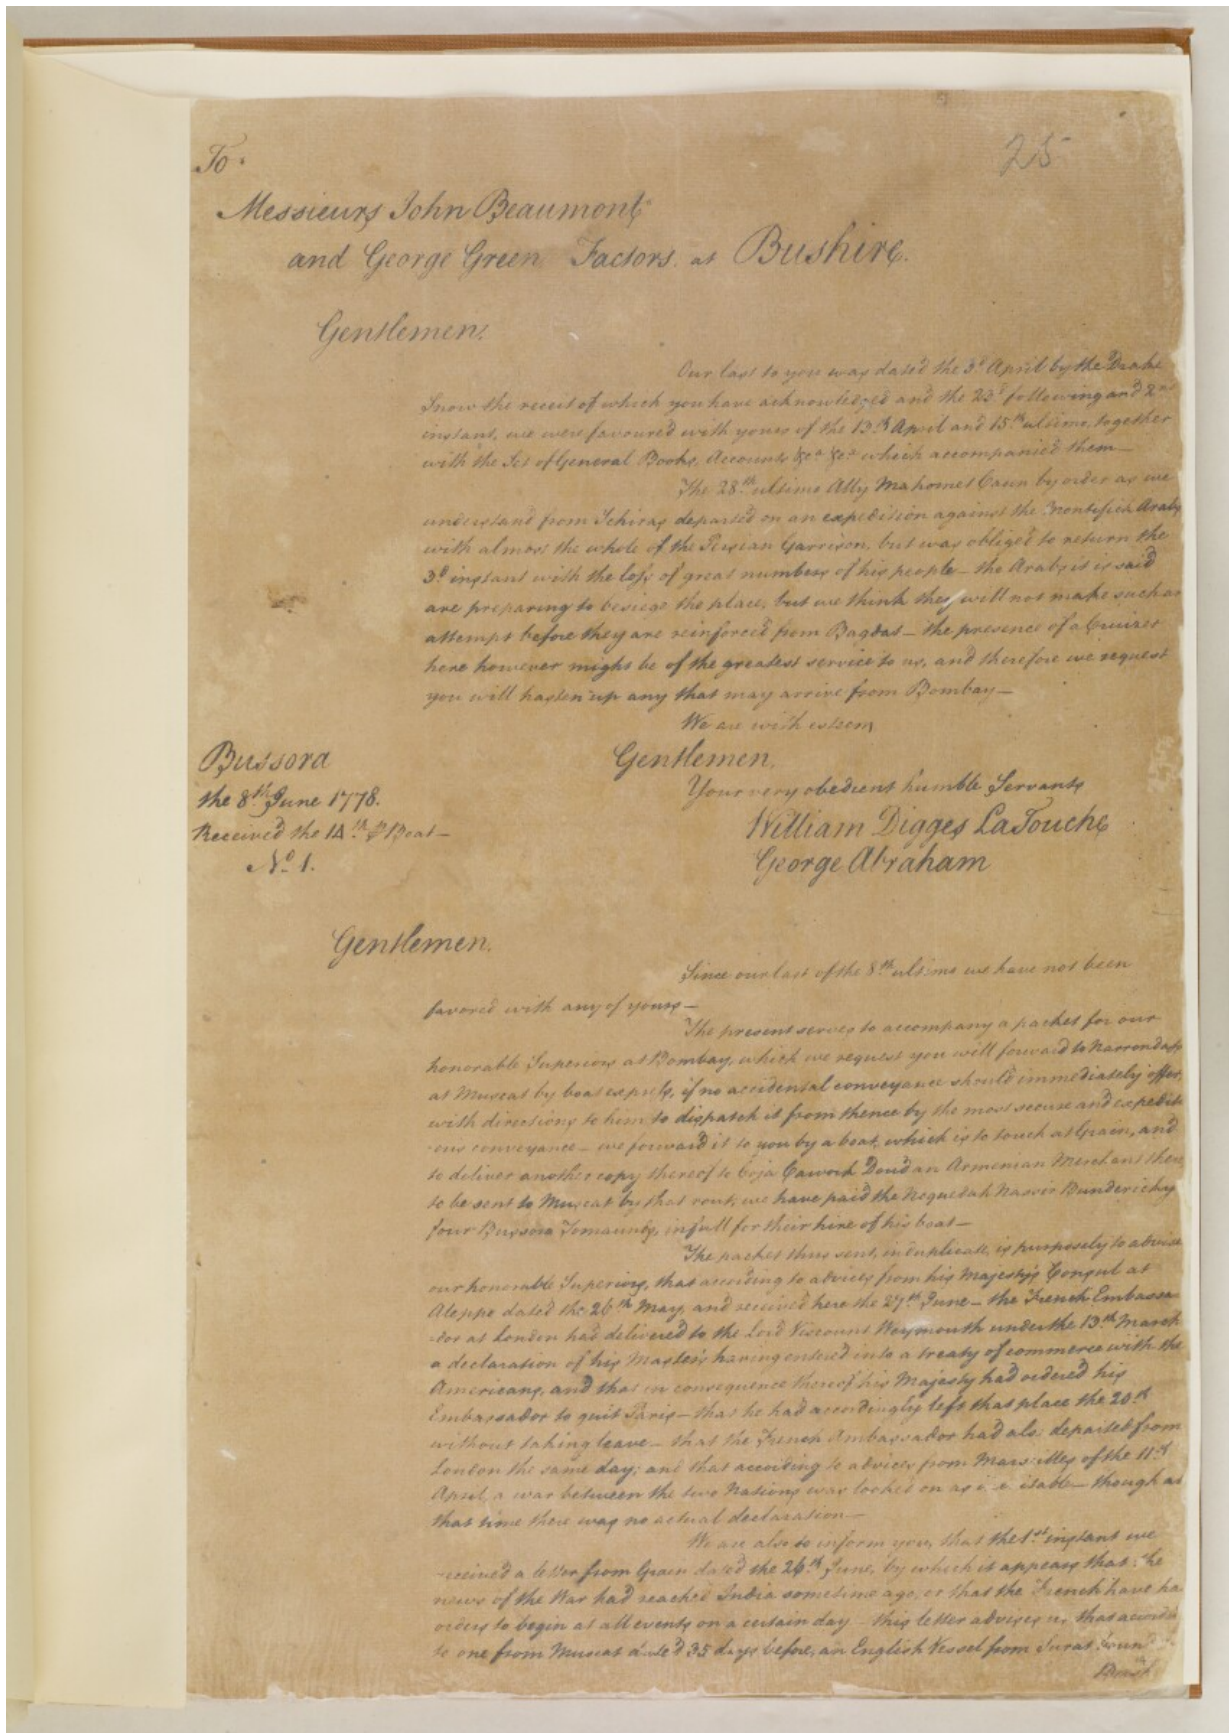 25
To
Messieurs John Beaumont
and George Green Factors at Bushire.
Gentlemen.
Our last to you was dated the 3d April by the Drake
Snow the receit of which you have acknowledged and the 23d following and 2nd
instant, we were favoured with yours of the 13th April and 15th ultimo, together
with the Set of General Books, Accounts &ca &ca which accompanied them—
The 28th ultimo Ally Mahomet Caun by order as we
understand from Schiras departed on an expedition against the Montifick Arabs
with almost the whole of the Persian Garrison, but was obliged to return the
3d instant with the loss of great numbers of his people — the Arabs it is said
are preparing to besiege the place, but we think they will not make such an
attempt before they are reinforced from Bagdat — the presence of a Cruizer
here however might be of the greatest service to us, and therefore we request
you will hasten up any that may arrive from Bombay—
We are with esteem,
Gentlemen.
Your very obedient humble Servants
William Digges LaTouche
George Abraham
Bussora
the 8th June 1778.
Received the 14th ⅌ Boat—
No. 1.
Gentlemen.
Since our last of the 8th ultimo we have not been
favored with any of yours—
The present serves to accompany a packet for our
honorable Superiors at Bombay, which we request you will forward to Narrondass
at Muscat by boat express, if no accidental conveyance should immediately offer,
with directions to him to dispatch it from thence by the most secure and expediti
-ous conveyance — we forward it to you by a boat, which is to touch at Grain, and
to deliver another copy thereof to Coja Cawork Doud an Armenian Merchant there
to be sent to Muscat by that rout, we have paid the Noquedah Nassir
four Bussora Tomaunds, in full for their hire of his boat—
The packet thus sent, in duplicate, is purposely to advise
our honorable Superiors, that according to advices from his Majesty's Consul at
Aleppo dated the 26th May, and received here the 27th June — the French Embassa
-dor at London had delivered to the Lord Viscount Weymouth under the 13th March
a declaration of his Master's having entered into a treaty of commerce with the
Americans, and that in consequence thereof his Majesty had ordered his
Embassador to quit Paris — that he had accordingly left that place the 20th
without taking leave — that the French Ambassador had also departed from
London the same day; and that according to advices from Marseilles of the 11th
April, a war between the two Nations was looked on as i e itable — though at
that time there was no actual declaration—
We are also to inform you, that the 1st instant we
received a letter from Grain dated the 26th June, by which it appears that the
news of the War had reached India sometime ago, or that the French have ha
orders to begin at all events on a certain day — this letter advises us that accord
to one from Muscat dated 35 days before, an English Vessel from Surat